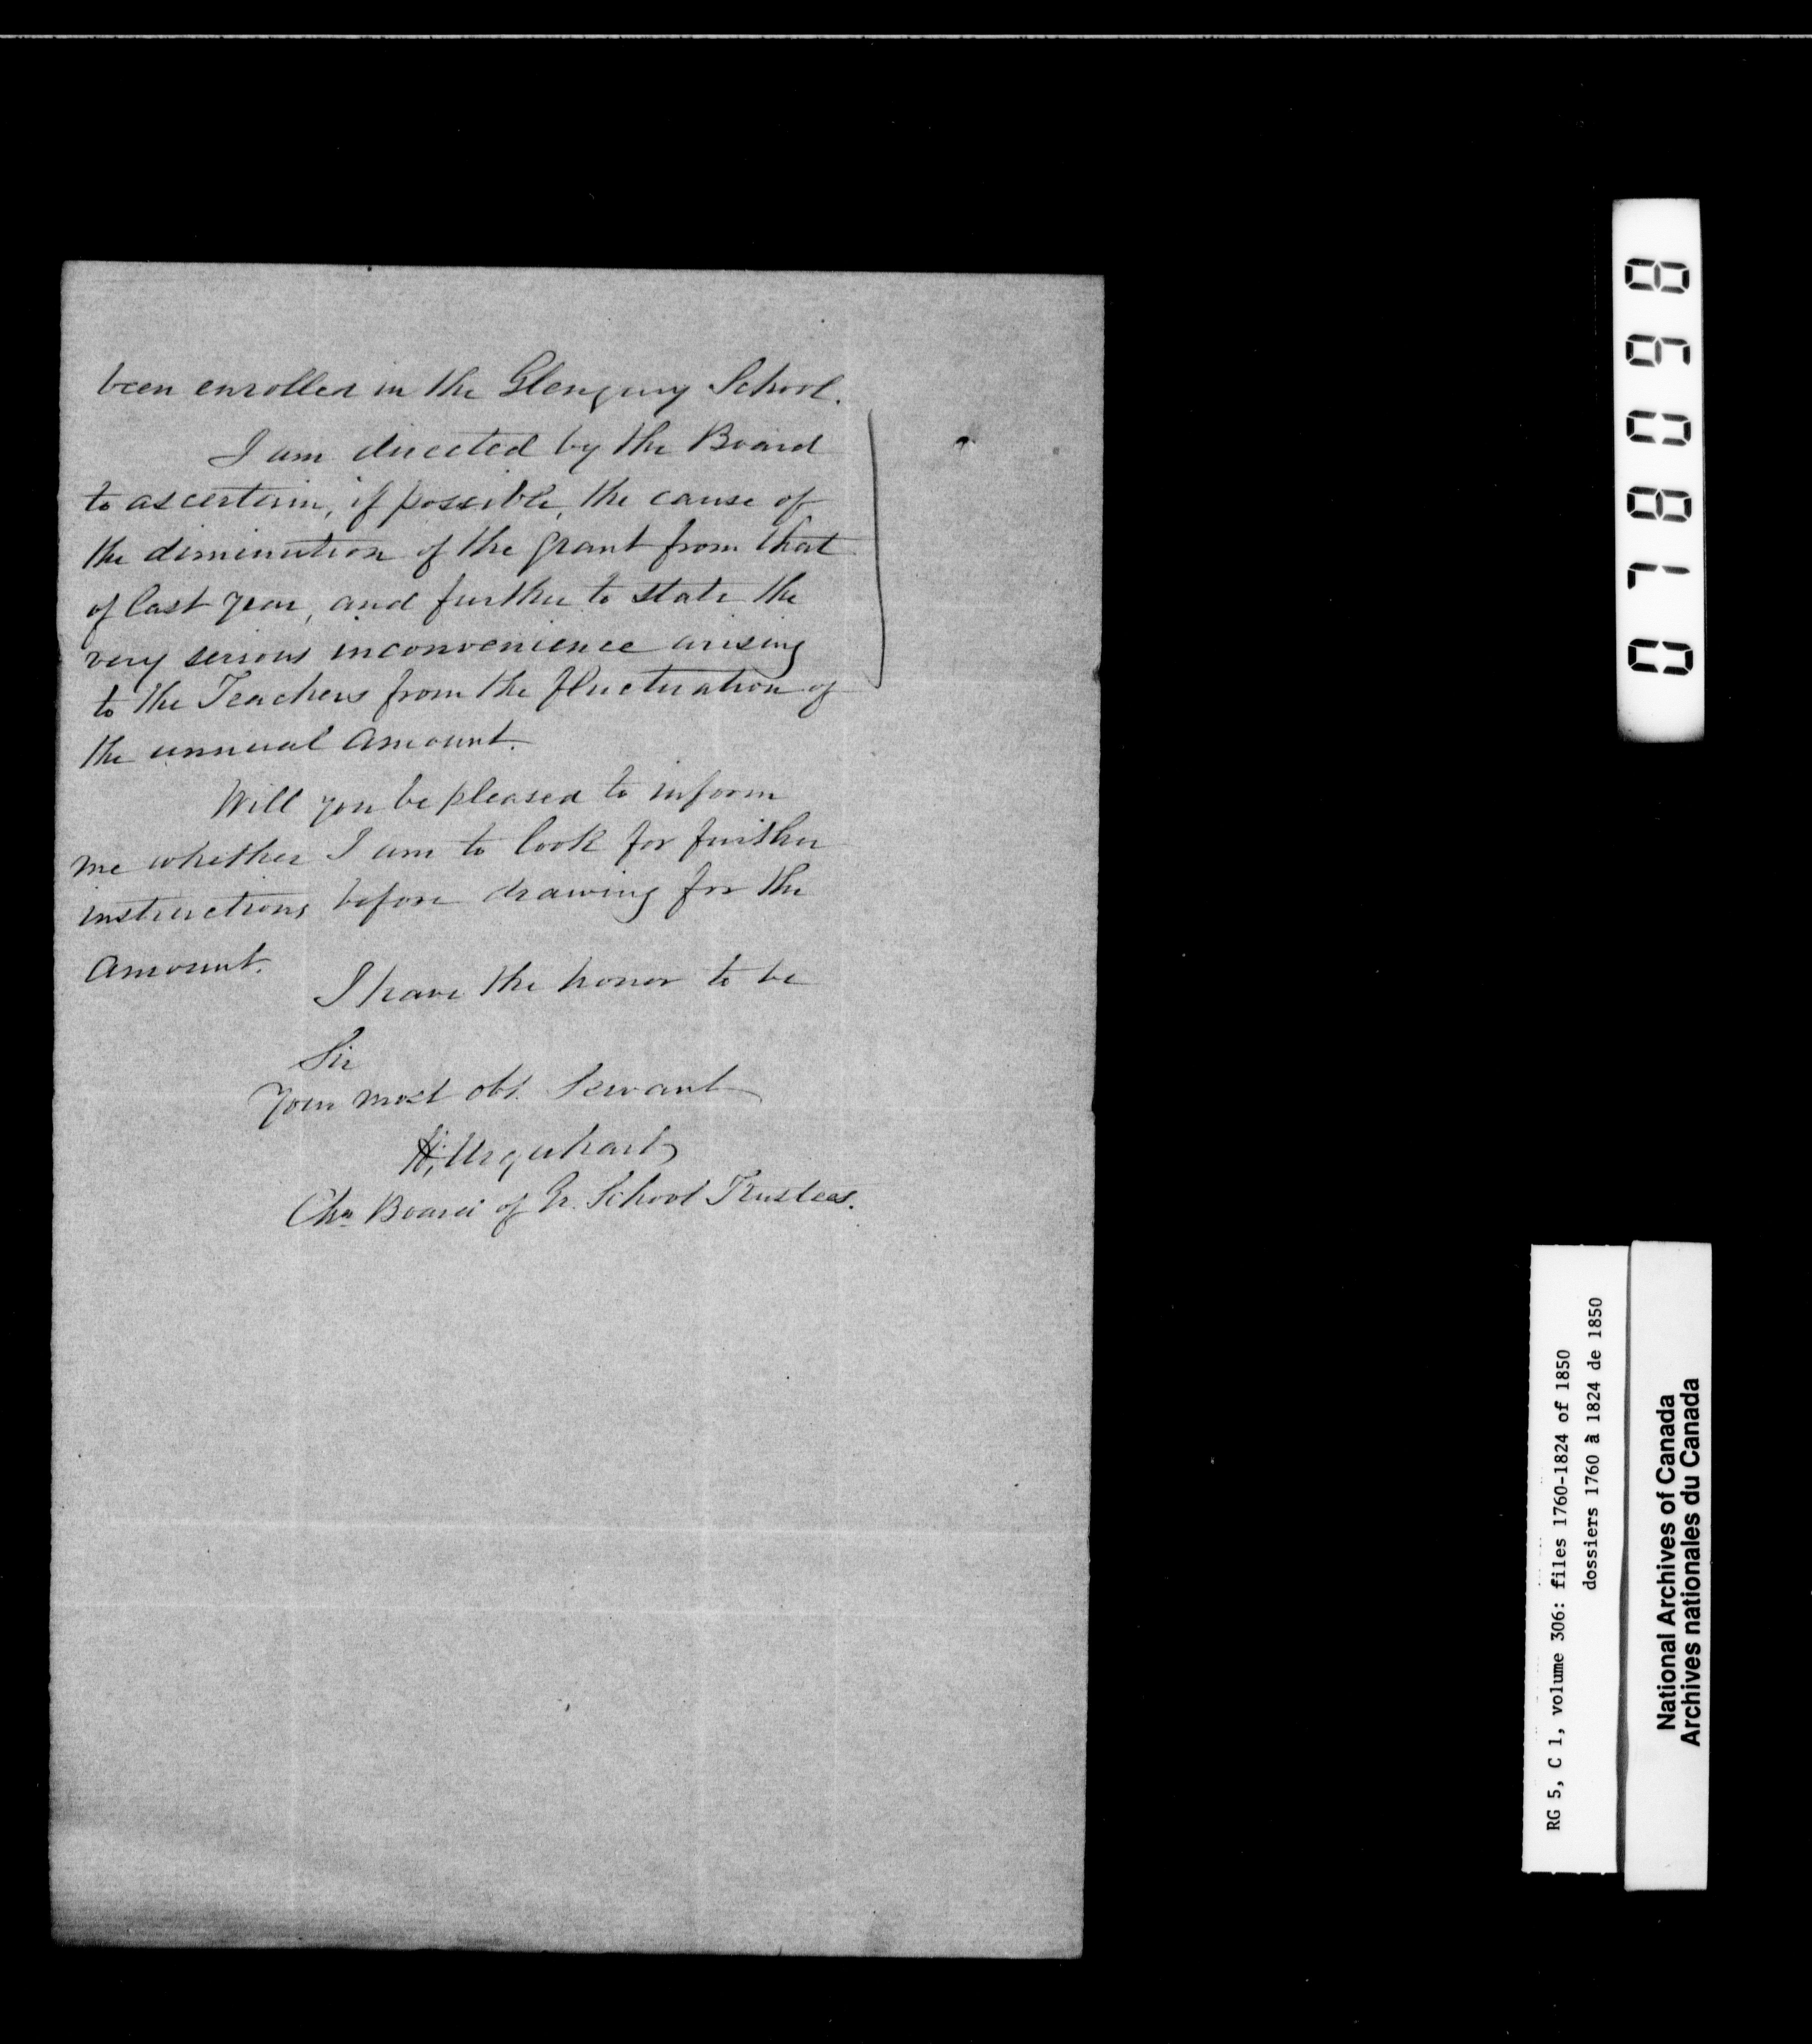 been enrolled in the Glengary School.
I am directed by the Board
to ascertain, if possible, the cause of
the diminution of the grant from that
of last year, and further to state the
very serious inconvenience arising
to the Teachers from the fluctuation of
the annual amount.
Will you be pleased to inform
me whether I am to look for further
instructions before drawing for the
amount.
I have the honor to be
Sir
Your most obt. Servant
H. Urquhart
Chn Board of Gr. School Trustees.
078098
RG 5, C 1, volume 306: files 1760-1824 of 1850
dossiers 1760 à 1824 de 1850
National Archives of Canada
Archives nationales du Canada